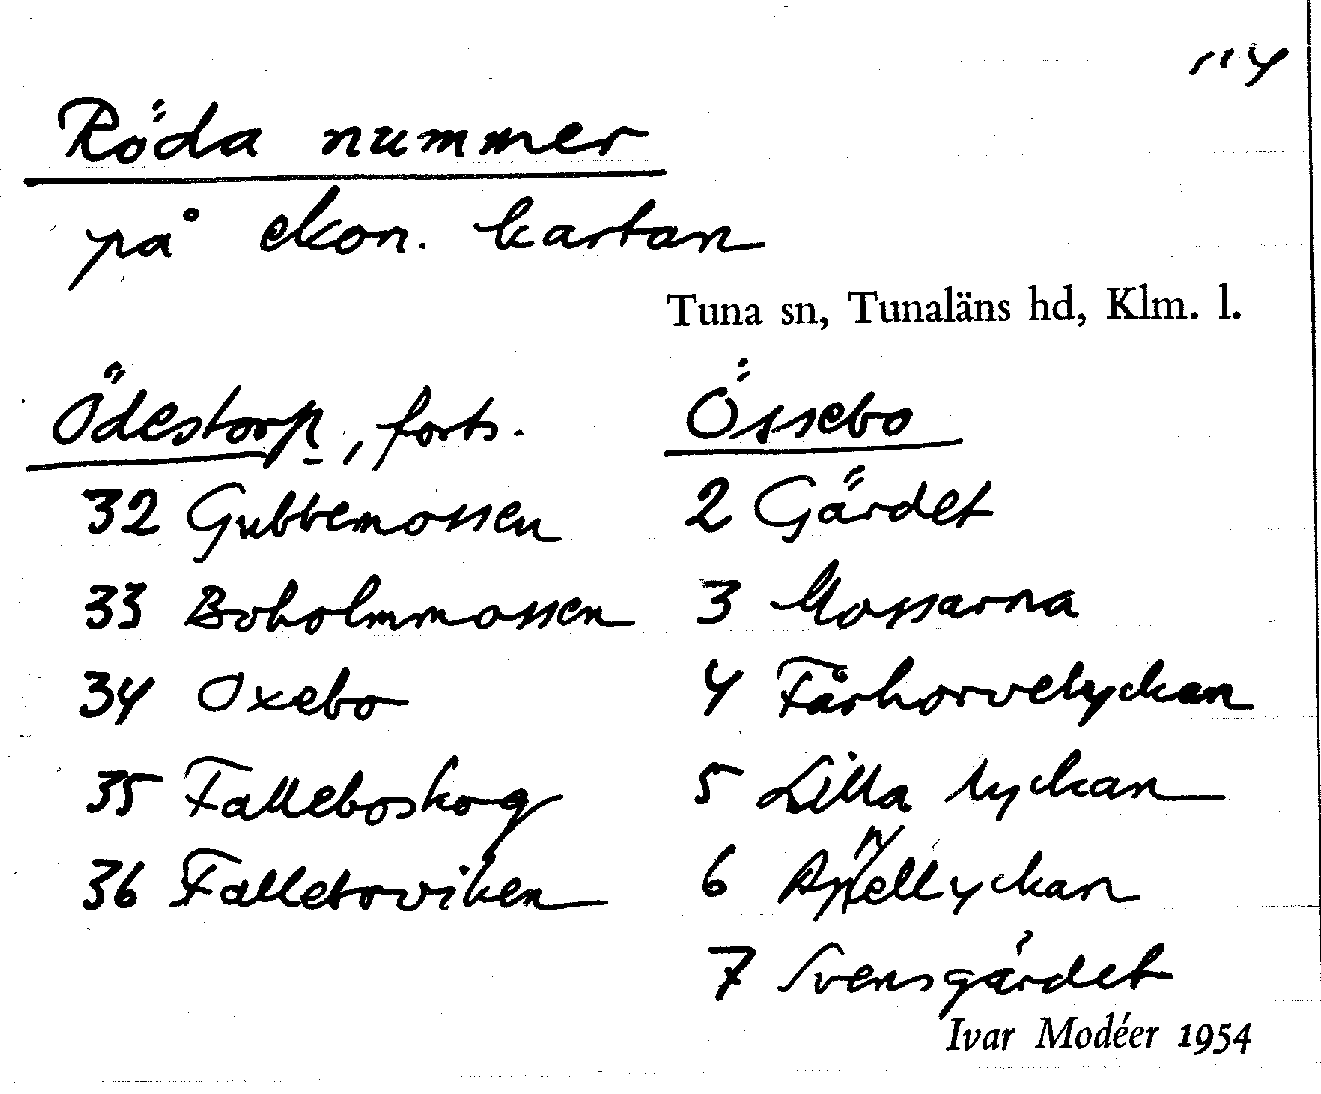 Röda nummer
på ekon. kartan
Tuna sn, Tunaläns hd, Klm. l.
Ödestorp, forts.
32 Gubbemossen
33 Boholmmossen
34 Oxebo
35 Falleboskog
36 Falleboviken
Össebo
2 Gärdet
3 Mossarna
4 Fårhorvelyckan
5 Lilla lyckan
6 Apellyckan
7 Svensgärdet
Ivar Modéer 1954